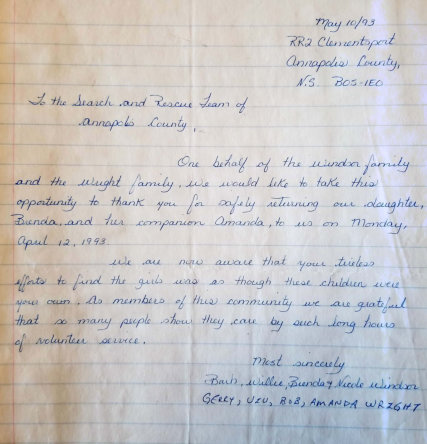 May 10/93
RR2 Clementsport
Annapolis County,
N.S. B0S-1E0
To the Search and Rescue Team of
Annapolis County,
One behalf of the Windsor family
and the Wright family, we would like to take this
opportunity to thank you for safely returning our daughter,
Brenda, and her companion Amanda, to us on Monday,
April 12, 1993.
We are now aware that your tireless
efforts to find the girls was as though these children were
your own. As members of this community we are grateful
that so many people show they care by such long hours
of volunteer service.
Most sincerely
Willie, Brenda & Nicole Windsor
GERRY, BOB, AMANDA WRIGHT